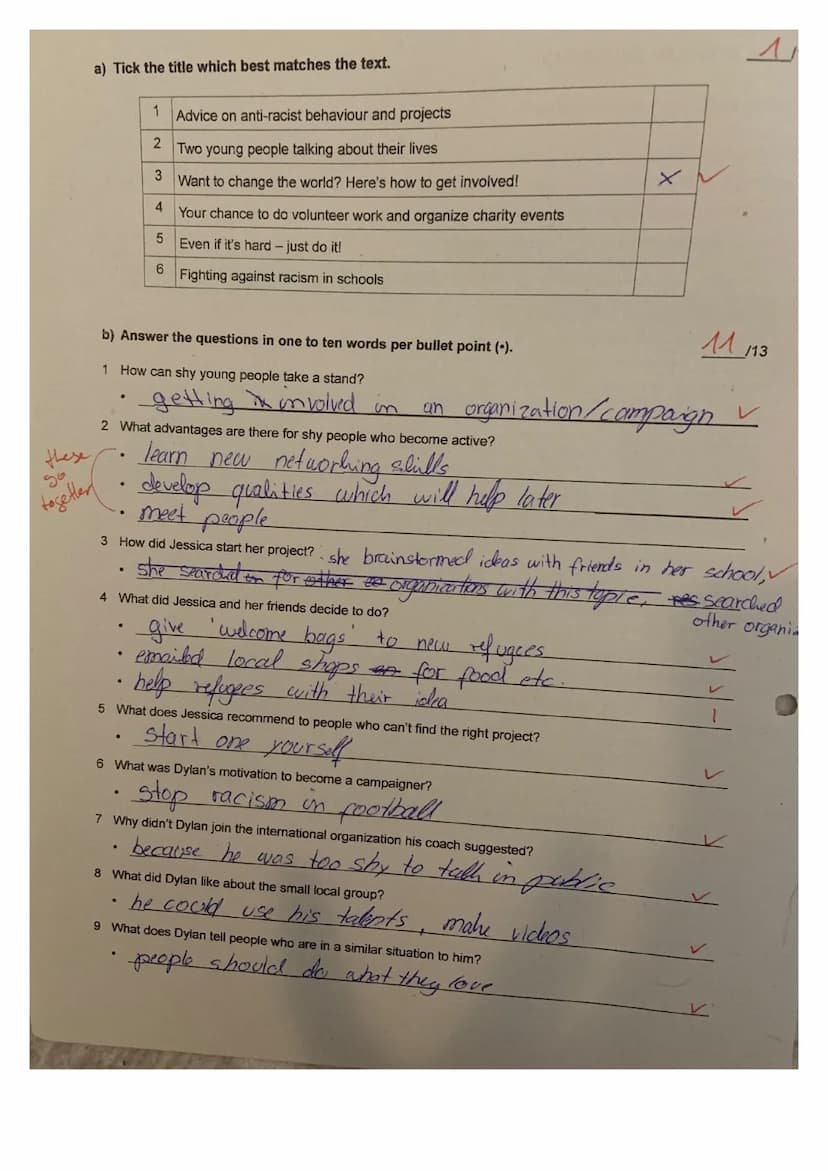 1/
a) Tick the title which best matches the text.
1 Advice on anti-racist behaviour and projects
2 Two young people talking about their lives
3 Want to change the world? Here's how to get involved! x
4 Your chance to do volunteer work and organize charity events
5 Even if it's hard – just do it!
6 Fighting against racism in schools
b) Answer the questions in one to ten words per bullet point (•). 11 /13
1 How can shy young people take a stand?
• getting involved in an organization/campaign
2 What advantages are there for shy people who become active?
these go together
• learn new networking skills
• develop qualities which will help later
• meet people
3 How did Jessica start her project? she brainstormed ideas with friends in her school,
• she searched for other organizations with this topic, searched
other organi
4 What did Jessica and her friends decide to do?
• give 'welcome bags' to new refugees
• emailed local shops for food etc.
• help refugees with their idea
5 What does Jessica recommend to people who can't find the right project?
• start one yourself
6 What was Dylan's motivation to become a campaigner?
• stop racism in football
7 Why didn't Dylan join the international organization his coach suggested?
• because he was too shy to talk in public
8 What did Dylan like about the small local group?
• he could use his talents, make videos
9 What does Dylan tell people who are in a similar situation to him?
• people should do what they love